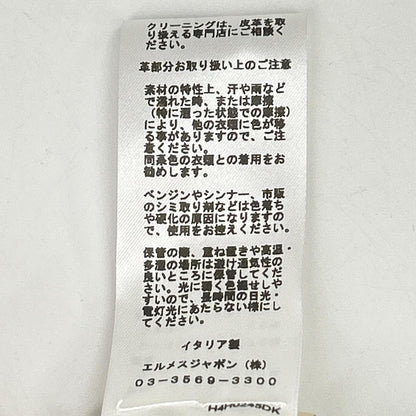 クリーニングは、皮革を取
り扱える専門店にご相談く
ださい。
革部分お取り扱い上のご注意
素材の特性上、汗や雨など
で濡れた時、または摩擦
（特に湿った状態での摩擦）
により、他の衣類に色が移
る事がありますので、ご注
意ください。
同系色の衣類との着用をお
勧めします。
ベンジンやシンナー、市販
のシミ取り剤などは色落ち
や硬化の原因になりますの
で、使用をお控えください。
保管の際、重ね置きや高温・
多湿の場所は避け通気性の
良いところに保管してくだ
さい。光に弱く色褪せしや
すいので、長時間の日光・
電灯光にあたらない様にし
てください。
イタリア製
エルメスジャポン（株）
03-3569-3300
H4H0245DK